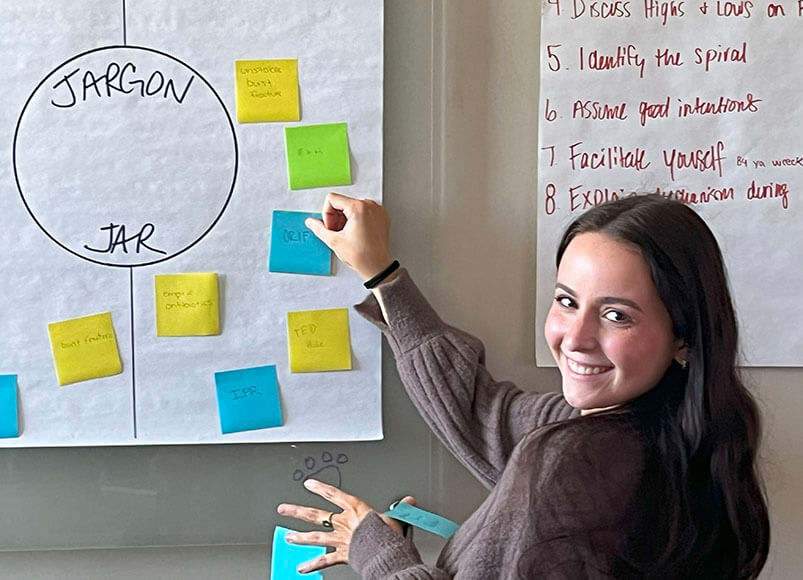 JARGON
JAR
unstable
burst
fracture
ORIF
empiric
antibiotics
TED
Hose
burst fracture
IPR
4. Discuss Highs & Lows on
5. Identify the spiral
6. Assume good intentions
7. Facilitate yourself B4 ya wreck
8. during